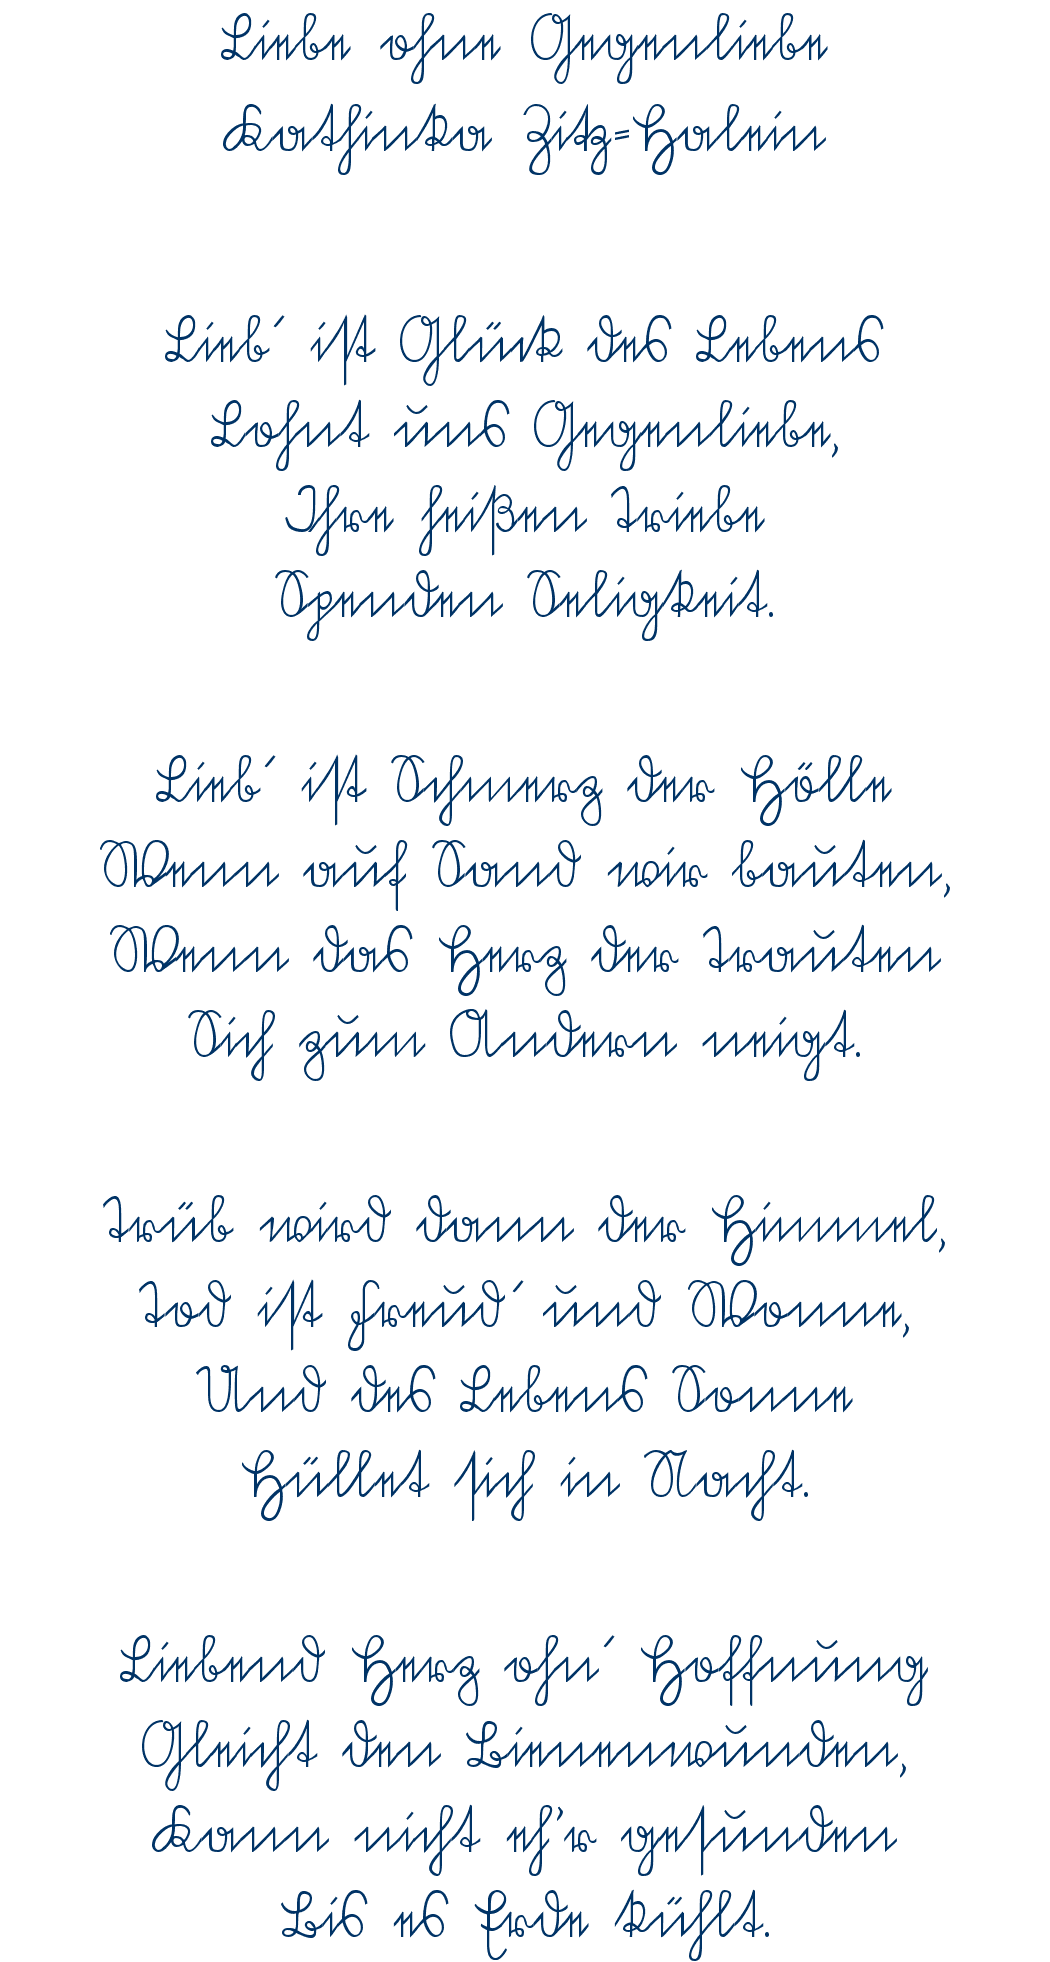 Liebe ohne Gegenliebe
Kathinka Zitz=Halein
Lieb´ ist Glück des Lebens
Lohnt uns Gegenliebe,
Ihre heißen Triebe
Spenden Seligkeit.
Lieb´ ist Schmerz der Hölle
Wenn auf Sand wir bauten,
Wenn das Herz der Trauten
Sich zum Andern neigt.
Trüb wird dann der Himmel,
Tod ist Freud´ und Wonne,
Und des Lebens Sonne
Hüllet sich in Nacht.
Liebend Herz ohn´ Hoffnung
Gleicht den Bienenwunden,
Kann nicht eh’r gesunden
Bis es Erde kühlt.